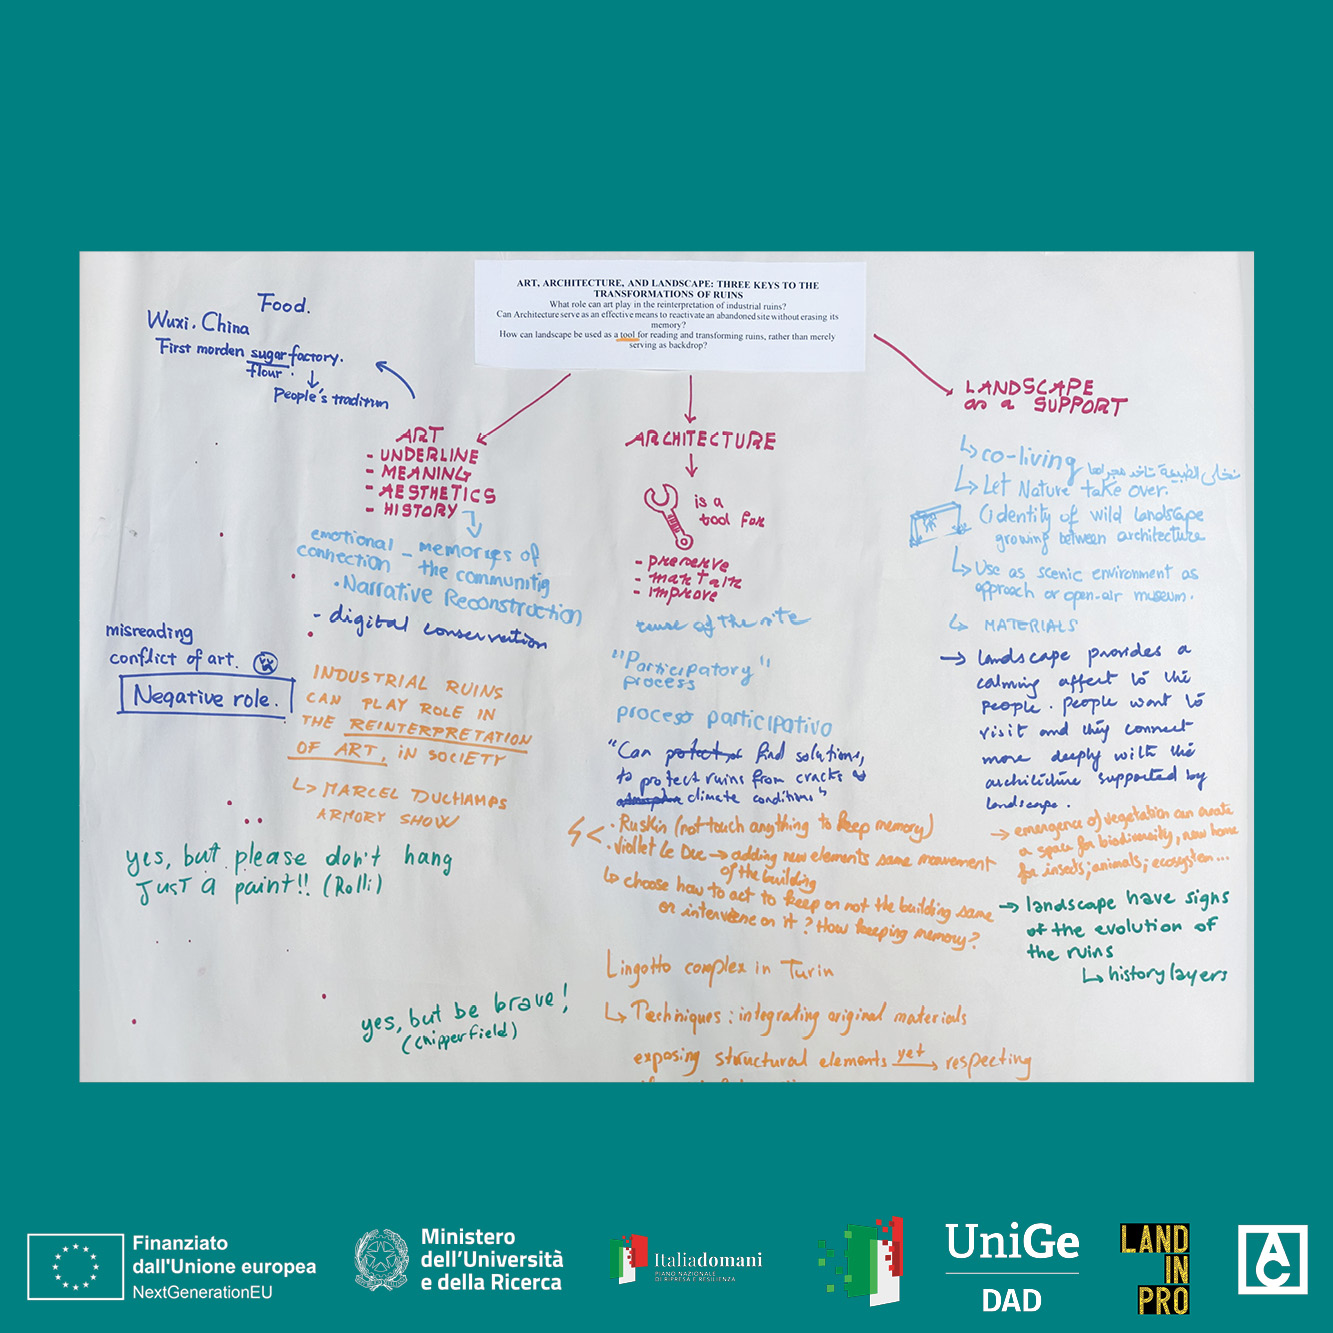 ART, ARCHITECTURE, AND LANDSCAPE: THREE KEYS TO THE
TRANSFORMATIONS OF RUINS
What role can art play in the reinterpretation of industrial ruins?
Can Architecture serve as an effective means to reactivate an abandoned site without erasing its
memory?
How can landscape be used as a tool for reading and transforming ruins, rather than merely
serving as backdrop?
Food.
Wuxi. China
First morden sugar factory.
flour.
People's tradition
ART
- UNDERLINE
- MEANING
- AESTHETICS
- HISTORY
emotional - memories of
connection the community
· Narrative Reconstruction
- digital conservation
misreading
conflict of art.
Negative role.
INDUSTRIAL RUINS
CAN PLAY ROLE IN
THE REINTERPRETATION
OF ART, IN SOCIETY
↳ MARCEL DUCHAMPS
ARMORY SHOW
yes, but please don't hang
JUST a paint!! (Rolli)
yes, but be brave!
(Chipperfield)
ARCHITECTURE
is a
tool for
- preserve
- improve
reuse of the site
"Participatory"
process
process participativo
"Can find solutions,
to protect ruins from cracks &
climate conditions"
· Ruskin (not touch anything to keep memory)
· Viollet Le Duc → adding new elements same movement
of the building
↳ choose how to act to keep or not the building same
or intervene on it? How keeping memory?
Lingotto complex in Turin
↳ Techniques: integrating original materials
exposing structural elements yet → respecting
LANDSCAPE
as a SUPPORT
↳ co-living
↳ Let Nature take over.
(identity of wild landscape
growing between architecture
↳ Use as scenic environment as
approach or open-air museum.
↳ MATERIALS
→ landscape provides a
calming affect to the
people. people want to
visit and they connect
more deeply with the
architecture supported by
landscape.
→ emergence of vegetation can create
a space for biodiversity, new home
for insects, animals, ecosystem...
→ landscape have signs
of the evolution of
the ruins
↳ history layers
Finanziato
dall'Unione europea
NextGenerationEU
Ministero
dell'Università
e della Ricerca
Italiadomani
PIANO NAZIONALE
DI RIPRESA E RESILIENZA
UniGe
DAD
LAND
IN
PRO
AC